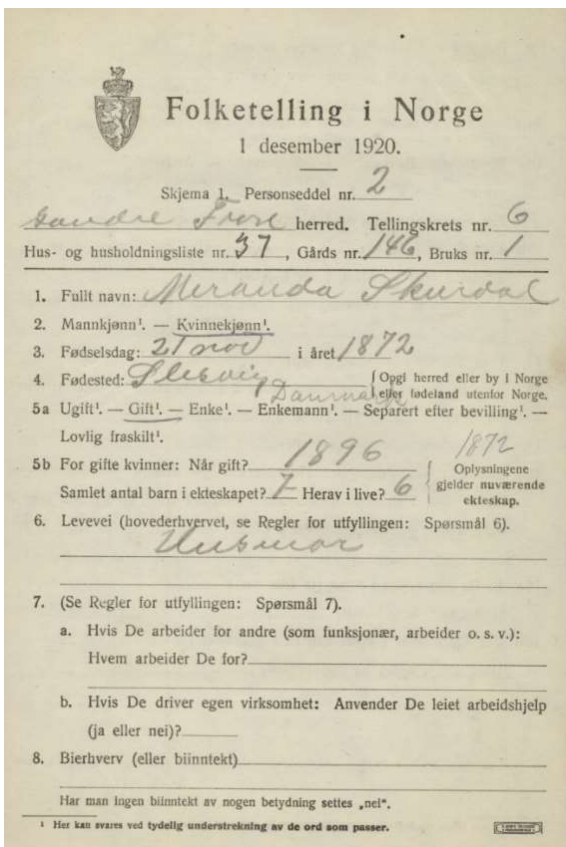 Folketelling i Norge
1 desember 1920.
Skjema 1. Personseddel nr. 2
herred. Tellingskrets nr. 6
Hus- og husholdningsliste nr. 37, Gårds nr. 146, Bruks nr. 1
1. Fullt navn: Meranda Skurdal
2. Mannkjønn¹. — Kvinnekjønn¹.
3. Fødselsdag: 21 nov i året 1872
4. Fødested: Slesvig Danmark { Opgi herred eller by i Norge
eller fødeland utenfor Norge.
5a Ugift¹. — Gift¹. — Enke¹. — Enkemann¹. — Separert efter bevilling¹. —
Lovlig fraskilt¹.
5b For gifte kvinner: Når gift? 1896 1872
Samlet antal barn i ekteskapet? 7 Herav i live? 6 { Oplysningene
gjelder nuværende
ekteskap.
6. Levevei (hovederhvervet, se Regler for utfyllingen: Spørsmål 6).
Husmor
7. (Se Regler for utfyllingen: Spørsmål 7).
a. Hvis De arbeider for andre (som funksjonær, arbeider o. s. v.):
Hvem arbeider De for?
b. Hvis De driver egen virksomhet: Anvender De leiet arbeidshjelp
(ja eller nei)?
8. Bierhverv (eller biinntekt)
Har man ingen biinntekt av nogen betydning settes „nei“.
¹ Her kan svares ved tydelig understrekning av de ord som passer.